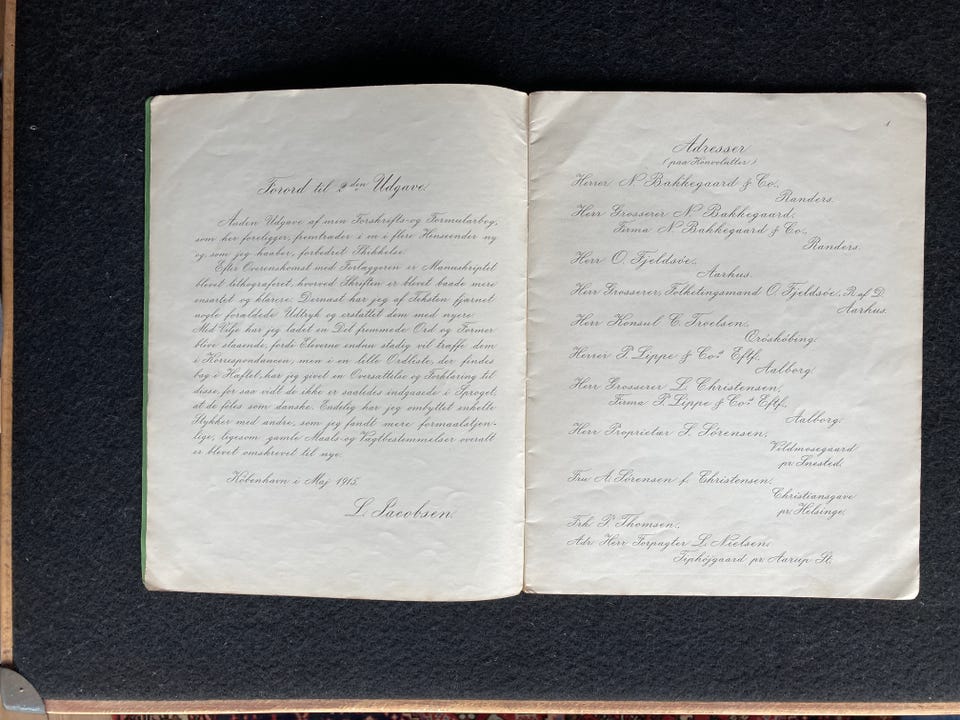 Forord til 2den Udgave.
Anden Udgave af min Forskrifts- og Formularbog,
som her foreligger, fremtræder i en i flere Henseender ny
og, som jeg haaber, forbedret Skikkelse.
Efter Overenskomst med Forlæggeren er Manuskriptet
blevet lithograferet, hvorved Skriften er blevet baade mere
ensartet og klarere. Dernæst har jeg af Teksten fjærnet
nogle forældede Udtryk og erstattet dem med nyere.
Med Vilje har jeg ladet en Del fremmede Ord og Former
blive staaende, fordi Eleverne endnu stadig vil træffe dem
i Korrespondancen, men i en lille Ordliste, der findes
bag i Hæftet, har jeg givet en Oversættelse og Forklaring til
disse, for saa vidt de ikke er saaledes indgaaede i Sproget,
at de føles som danske. Endelig har jeg ombyttet enkelte
Stykker med andre, som jeg fandt mere formaalstjen-
lige, ligesom gamle Maals- og Vægtbestemmelser overalt
er blevet omskrevet til nye.
København i Maj 1915.
L. Jacobsen.
1
Adresser
(paa Konvolutter)
Herrer N. Bakkegaard & Co.,
Randers.
Herr Grosserer N. Bakkegaard,
Firma N. Bakkegaard & Co.,
Randers.
Herr O. Fjeldsøe,
Aarhus.
Herr Grosserer, Folketingsmand O. Fjeldsøe, R. af D.
Aarhus.
Herr Konsul C. Troelsen,
Ærøskøbing.
Herrer P. Lippe & Co.s Eftf.,
Aalborg.
Herr Grosserer L. Christensen,
Firma P. Lippe & Co.s Eftf.,
Aalborg.
Herr Proprietær S. Sørensen,
Vildmosegaard
pr. Snested.
Fru A. Sørensen f. Christensen,
Christiansgave
pr. Helsinge.
Frk. P. Thomsen,
Adr. Herr Forpagter L. Nielsen,
Tiphøjgaard pr. Aarup St.